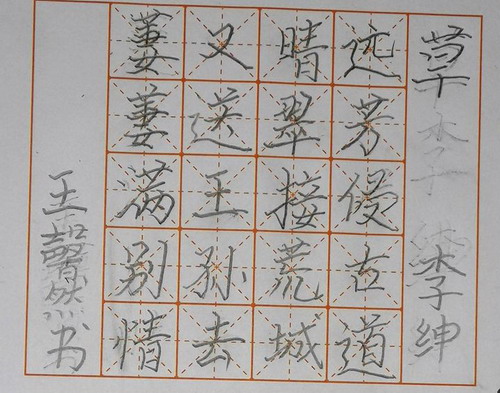 草 李绅
迹芳侵古道
晴翠接荒城
又送王孙去
萋萋满别情
王馨然书